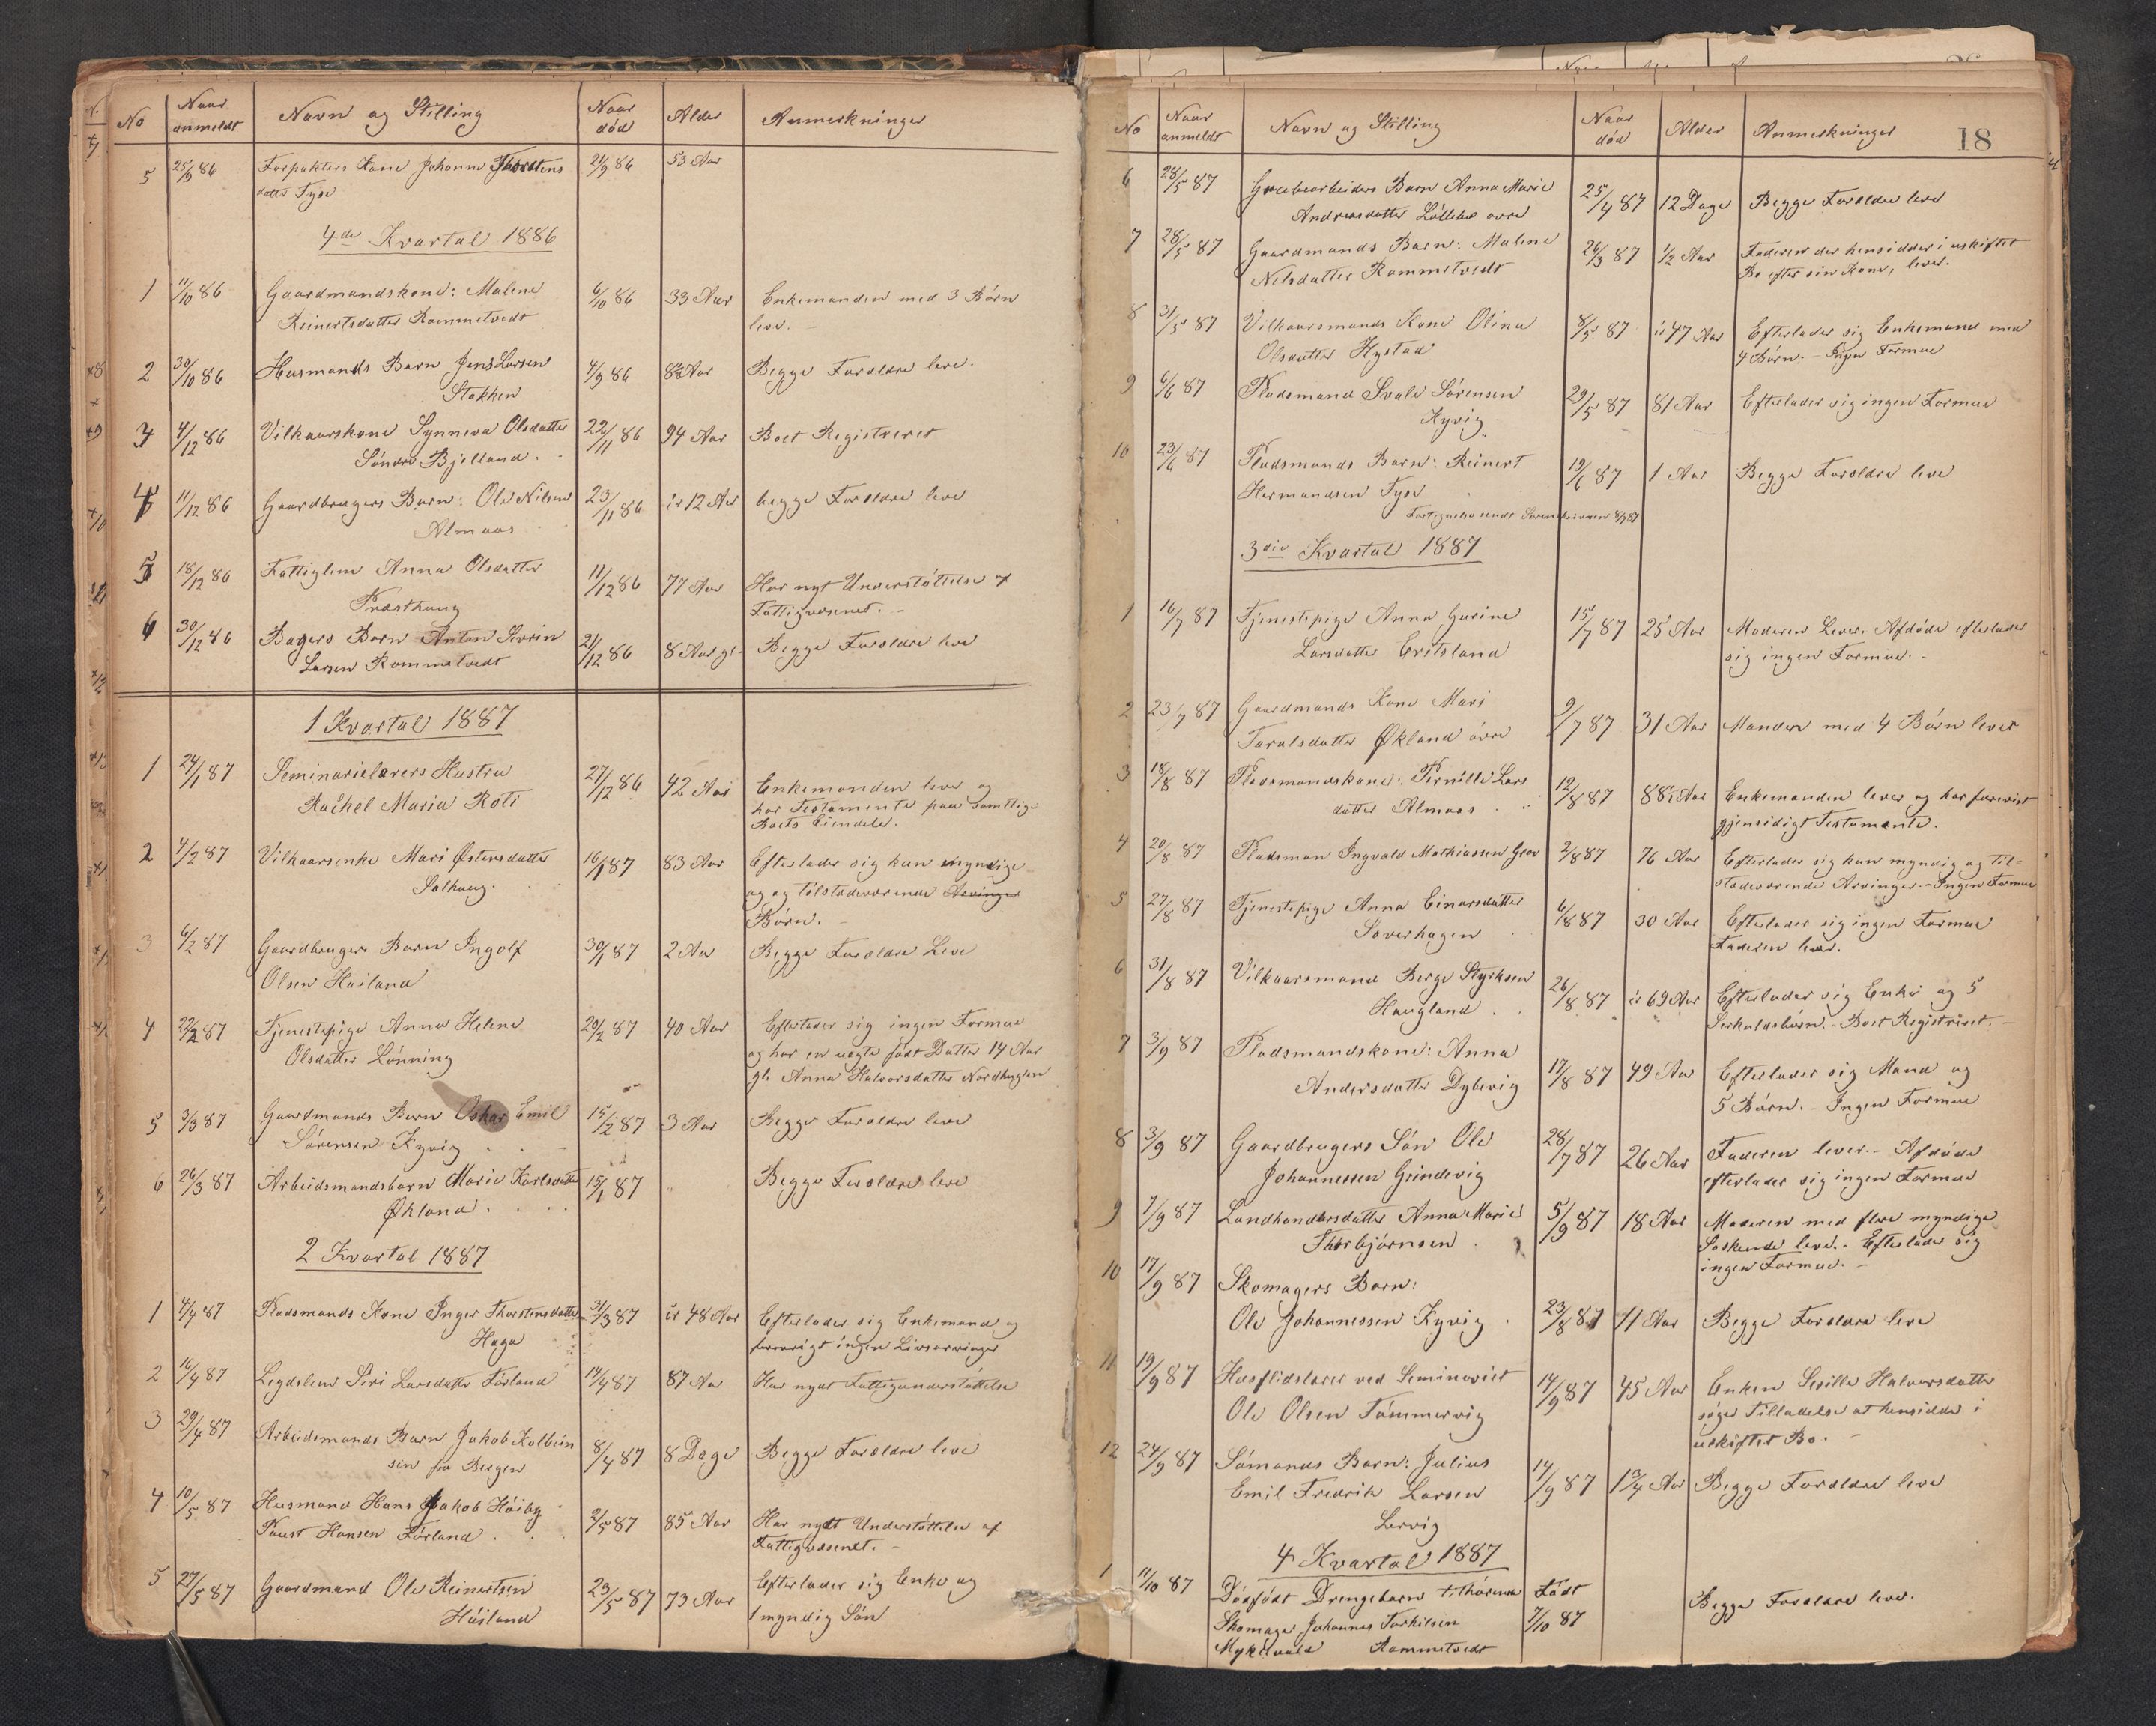 No
Naar anmeldt
Navn og Stilling
Naar død
Alder
Anmerkninger
5 25/9 86 Forpakters Kone Johanne Thorstens 21/9 86 53 Aar
datter Tyse
4de Kvartal 1886
1 11/10 86 Gaardmandskone: Malene 6/10 86 33 Aar Enkemanden med 3 Børn
Reinertsdatter Rommetvedt leve. -
2 30/10 86 Husmands Barn Jens Larsen 4/9 86 Aar Begge Foraldre leve.
Stokken
3 4/12 86 Vilkaarskone Synneva Olsdatter 22/11 86 94 Aar Boet Registreret
Søndre Bjelland.
4 11/12 86 Gaardbrugers Barn: Ole Nilsen 23/11 86 ir 12 Aar begge Foraldre leve
Almaas
5 18/12 86 Fattiglem Anna Olsdatter 11/12 86 77 Aar Har nyt Understøttelse af
Præsthaug Fattigvæsenet. -
6 30/12 86 Bagers Barn Anton Severin 21/12 86 8 Aar gl. Begge Foraldre leve
Larsen Rommetvedt
1 Kvartal 1887
1 24/1 87 Seminarielærers Hustru 27/12 86 42 Aar Enkemanden leve og
Rachel Maria Roti har Testamente paa samtlige
Boets Eiendele.
2 4/2 87 Vilkaarsenke Mari Østensdatter 16/1 87 83 Aar Efterlader sig kun myndige
Solhaug. og og tilstedeværende Arvinger
Børn. -
3 6/2 87 Gaardbrugers Barn Ingolf 30/1 87 2 Aar Begge Foraldre Leve
Olsen Hoiland
4 22/2 87 Tjenestepige Anna Helene 20/2 87 40 Aar Efterlader sig ingen Formue
Olsdatter Lønning og har en uegte født Datter 14 Aar
gl. Anna Halvorsdatter Nordhuglen
5 3/3 87 Gaardmands Barn Oskar Emil 15/2 87 3 Aar Begge Foraldre leve
Sørensen Kyvig
6 26/3 87 Arbeidsmandsbarn Marie Karlsdatter 15/1 87 Begge Foraldre leve
Økland.
2 Kvartal 1887
1 4/4 87 Pladsmands Kone Inger Thorstensdatter 31/3 87 ir 48 Aar Efterlader sig Enkemand og
Haga forøvrigt ingen Livsarvinger
2 16/4 87 Legdslem Siri Larsdatter Førland 14/4 87 87 Aar Har nydt Fattigunderstøttelse
3 29/4 87 Arbeidsmands Barn Jakob Kolbein 8/4 87 8 Dage Begge Foraldre leve
sen fra Bergen
4 10/5 87 Husmand Hans Jakob Høiby 2/5 87 85 Aar Har nydt Understøttelse af
Faust Hansen Førland. Fattigvæsenet. -
5 27/5 87 Gaardmand Ole Reinertsen 23/5 87 73 Aar Efterlader sig Enke og
Høiland 1 myndig Søn
18
No
Naar anmeldt
Navn og Stilling
Naar død
Alder
Anmerkninger
6 28/5 87 Grubearbeiders Barn Anna Marie 25/4 87 12 Dage Begge Foraldre leve
Andreasdatter øvre
7 28/5 87 Gaardmands Barn: Malene 26/3 87 1/2 Aar Faderen der hensidder i uskiftet
Nelsdatter Rommetvedt Bo efter sin Kone, lever.
8 31/5 87 Vilkaarsmands Kone Olina 8/5 87 ir 47 Aar Efterlader sig Enkemand med
Olsdatter Hystad 4 Børn. - Ingen Formue
9 6/6 87 Pladsmand Svale Sørensen 29/5 87 81 Aar Efterlader sig ingen Formue
Kyvig
10 23/6 87 Pladsmands Barn: Reinert 19/6 87 1 Aar Begge Foraldre leve
Hermandsen Tyse
Fortegnelse sendt Sorenskriveren 8/7 87
3die Kvartal 1887
1 16/7 87 Tjenestepige Anna Gurine 15/7 87 25 Aar Moderen Lever. Afdøde efterlader
Larsdatter Eritsland sig ingen Formue. -
2 23/7 87 Gaardmands Kone Mari 9/7 87 31 Aar Manden med 4 Børn lever
Taralsdatter Økland øvre
3 18/8 87 Pladsmandskone: Pernille Lars 12/8 87 Aar Enkemanden lever og har forevist
datter Almaas gjensidigt Testamente.
4 20/8 87 Pladsman Ingvald Mathiassen Grov 2/8 87 76 Aar Efterlader sig kun myndig og til-
stedeværende Arvinger. - Ingen Formue
5 27/8 87 Tjenestepige Anna Einarsdatter 6/8 87 30 Aar Efterlader sig ingen Formue
Sæverhagen Faderen lever.
6 31/8 87 Vilkaarsmand Berge Styrksen 26/8 87 ir 69 Aar Efterlader sig Enke og 5
Haugland Serkuldsbørn. - Boet Registreret. -
7 3/9 87 Pladsmandskone: Anna 17/8 87 49 Aar Efterlader sig Mand og
Andersdatter Dybevig 5 Børn. - Ingen Formue
8 3/9 87 Gaardbrugers Søn Ole 28/7 87 26 Aar Faderen lever. - Afdøde
Johannessen Grindevig efterlader sig ingen Formue
9 7/9 87 Landhandlersdatter Anna Marie 5/9 87 18 Aar Moderen med flere myndige
Thorbjørnsen Søskende leve. - Efterlader sig
ingen Formue. -
10 17/9 87 Skomagers Barn:
Ole Johannessen Kyvig 23/8 87 11 Aar Begge Foraldre leve
11 19/9 87 Husflidslærer ved Seminariet 14/9 87 45 Aar Enken Sesilla Halvorsdatter
Ole Olsen Tømmervig søger Tilladelse at hensidde i
uskiftet Bo. -
12 24/9 87 Sømands Barn: Julius 14/9 87 1 3/4 Aar Begge Foraldre leve
Emil Fredrik Larsen
Lervig
4 Kvartal 1887
1 11/10 87 Dødfødt Drengebarn tilhørende Født Begge Foraldre lever.
Skomager Johannes Torkilsen 7/10 87
Myklevold Rommetvedt